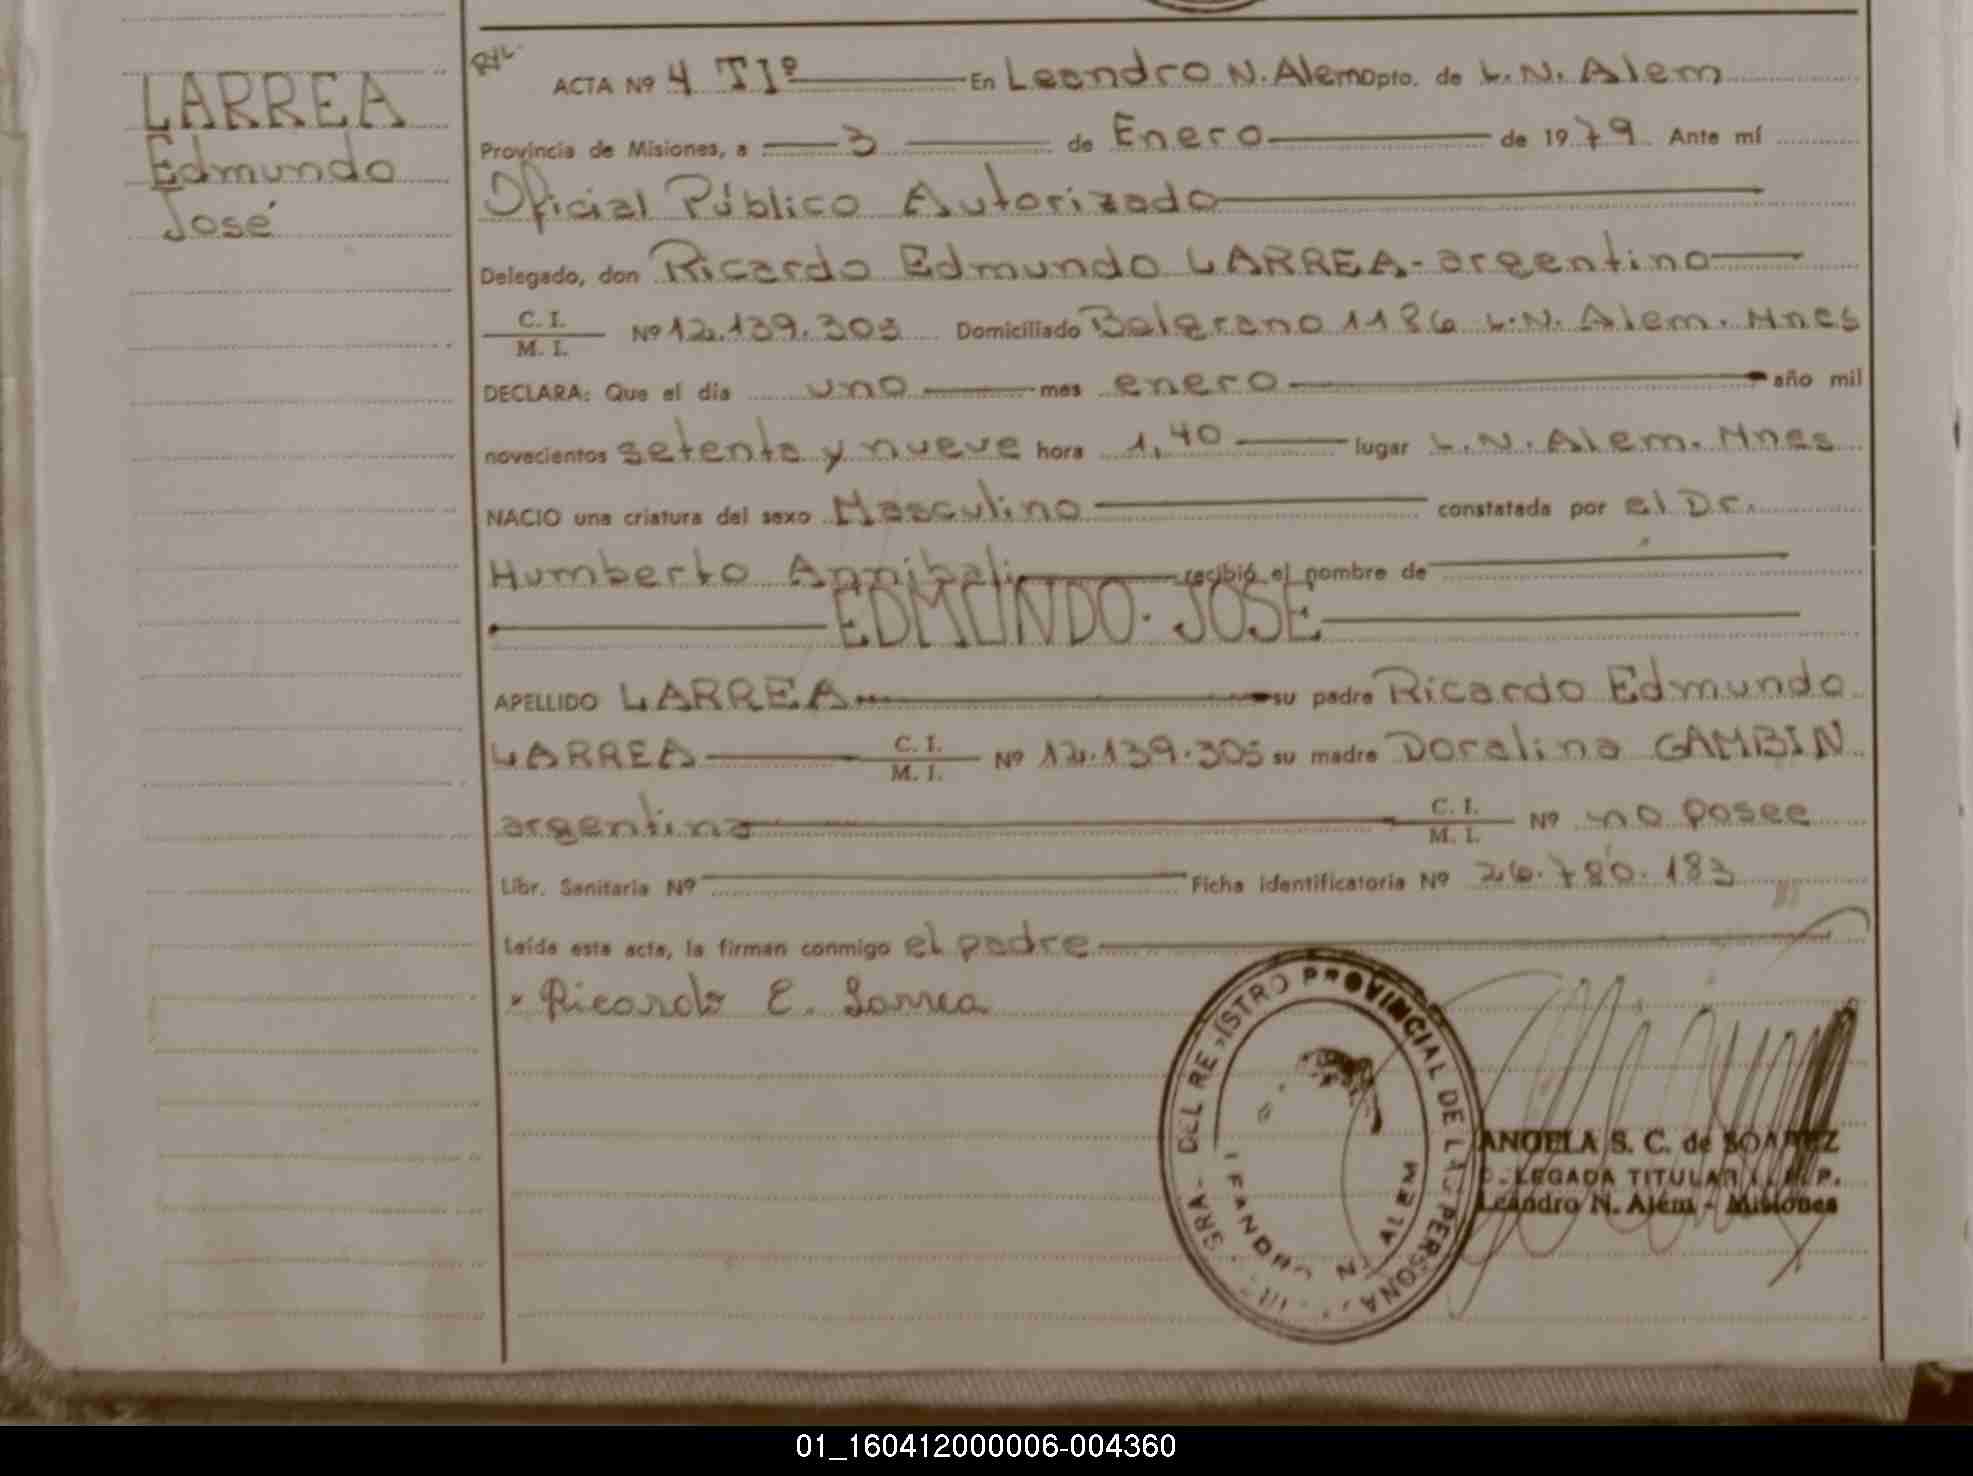 LARREA
Edmundo
José
ACTA Nº 4 TIº En Leandro N. Alem Dpto. de L.N. Alem
Provincia de Misiones, a 3 de Enero de 1979 Ante mí
Oficial Público Autorizado
Delegado, don Ricardo Edmundo LARREA - argentino
C. I.
M. I. Nº 12.139.305 Domiciliado Belgrano 1186 L.N. Alem. Mnes
DECLARA: Que el día uno mes enero año mil
novecientos setenta y nueve hora 1,40 lugar L.N. Alem. Mnes
NACIO una criatura del sexo Masculino constatada por el Dr.
Humberto Annibali recibió el nombre de
EDMUNDO JOSE
APELLIDO LARREA su padre Ricardo Edmundo
LARREA C. I. M. I. Nº 12.139.305 su madre Doralina GAMBIN
argentina C. I. M. I. Nº no posee
Libr. Sanitaria Nº Ficha identificatoria Nº 26.780.183
Leída esta acta, la firman conmigo el padre
Ricardo E. Larrea
DEL REGISTRO PROVINCIAL DE LAS PERSONAS
LEANDRO N. ALEM
ANGELA S. C. de SOAREZ
DELEGADA TITULAR
Leandro N. Além - Misiones
01_160412000006-004360